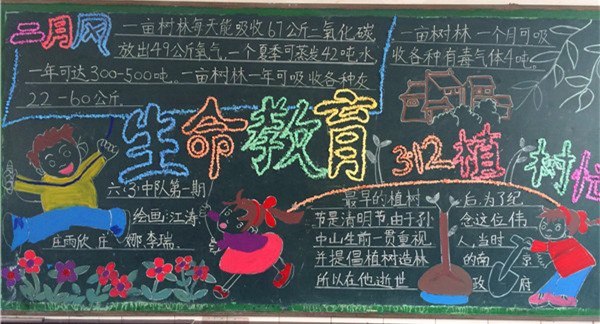 二月风
一亩树林每天能吸收67公斤二氧化碳
放出49公斤氧气,一个夏季可蒸发42吨水,
一年可达300-500吨。一亩树林一年可吸收各种灰
22-60公斤.
一亩树林一个月可吸
收各种有毒气体4吨
生命教育
312植树忙
六(3)中队第一期
绘画:江涛
庄雨欣 庄娜 李瑞
最早的植树
节是清明节由于孙
中山生前一贯重视
并提倡植树造林
所以在他逝世
后,为了纪
念这位伟
人,当时
的南京
政府